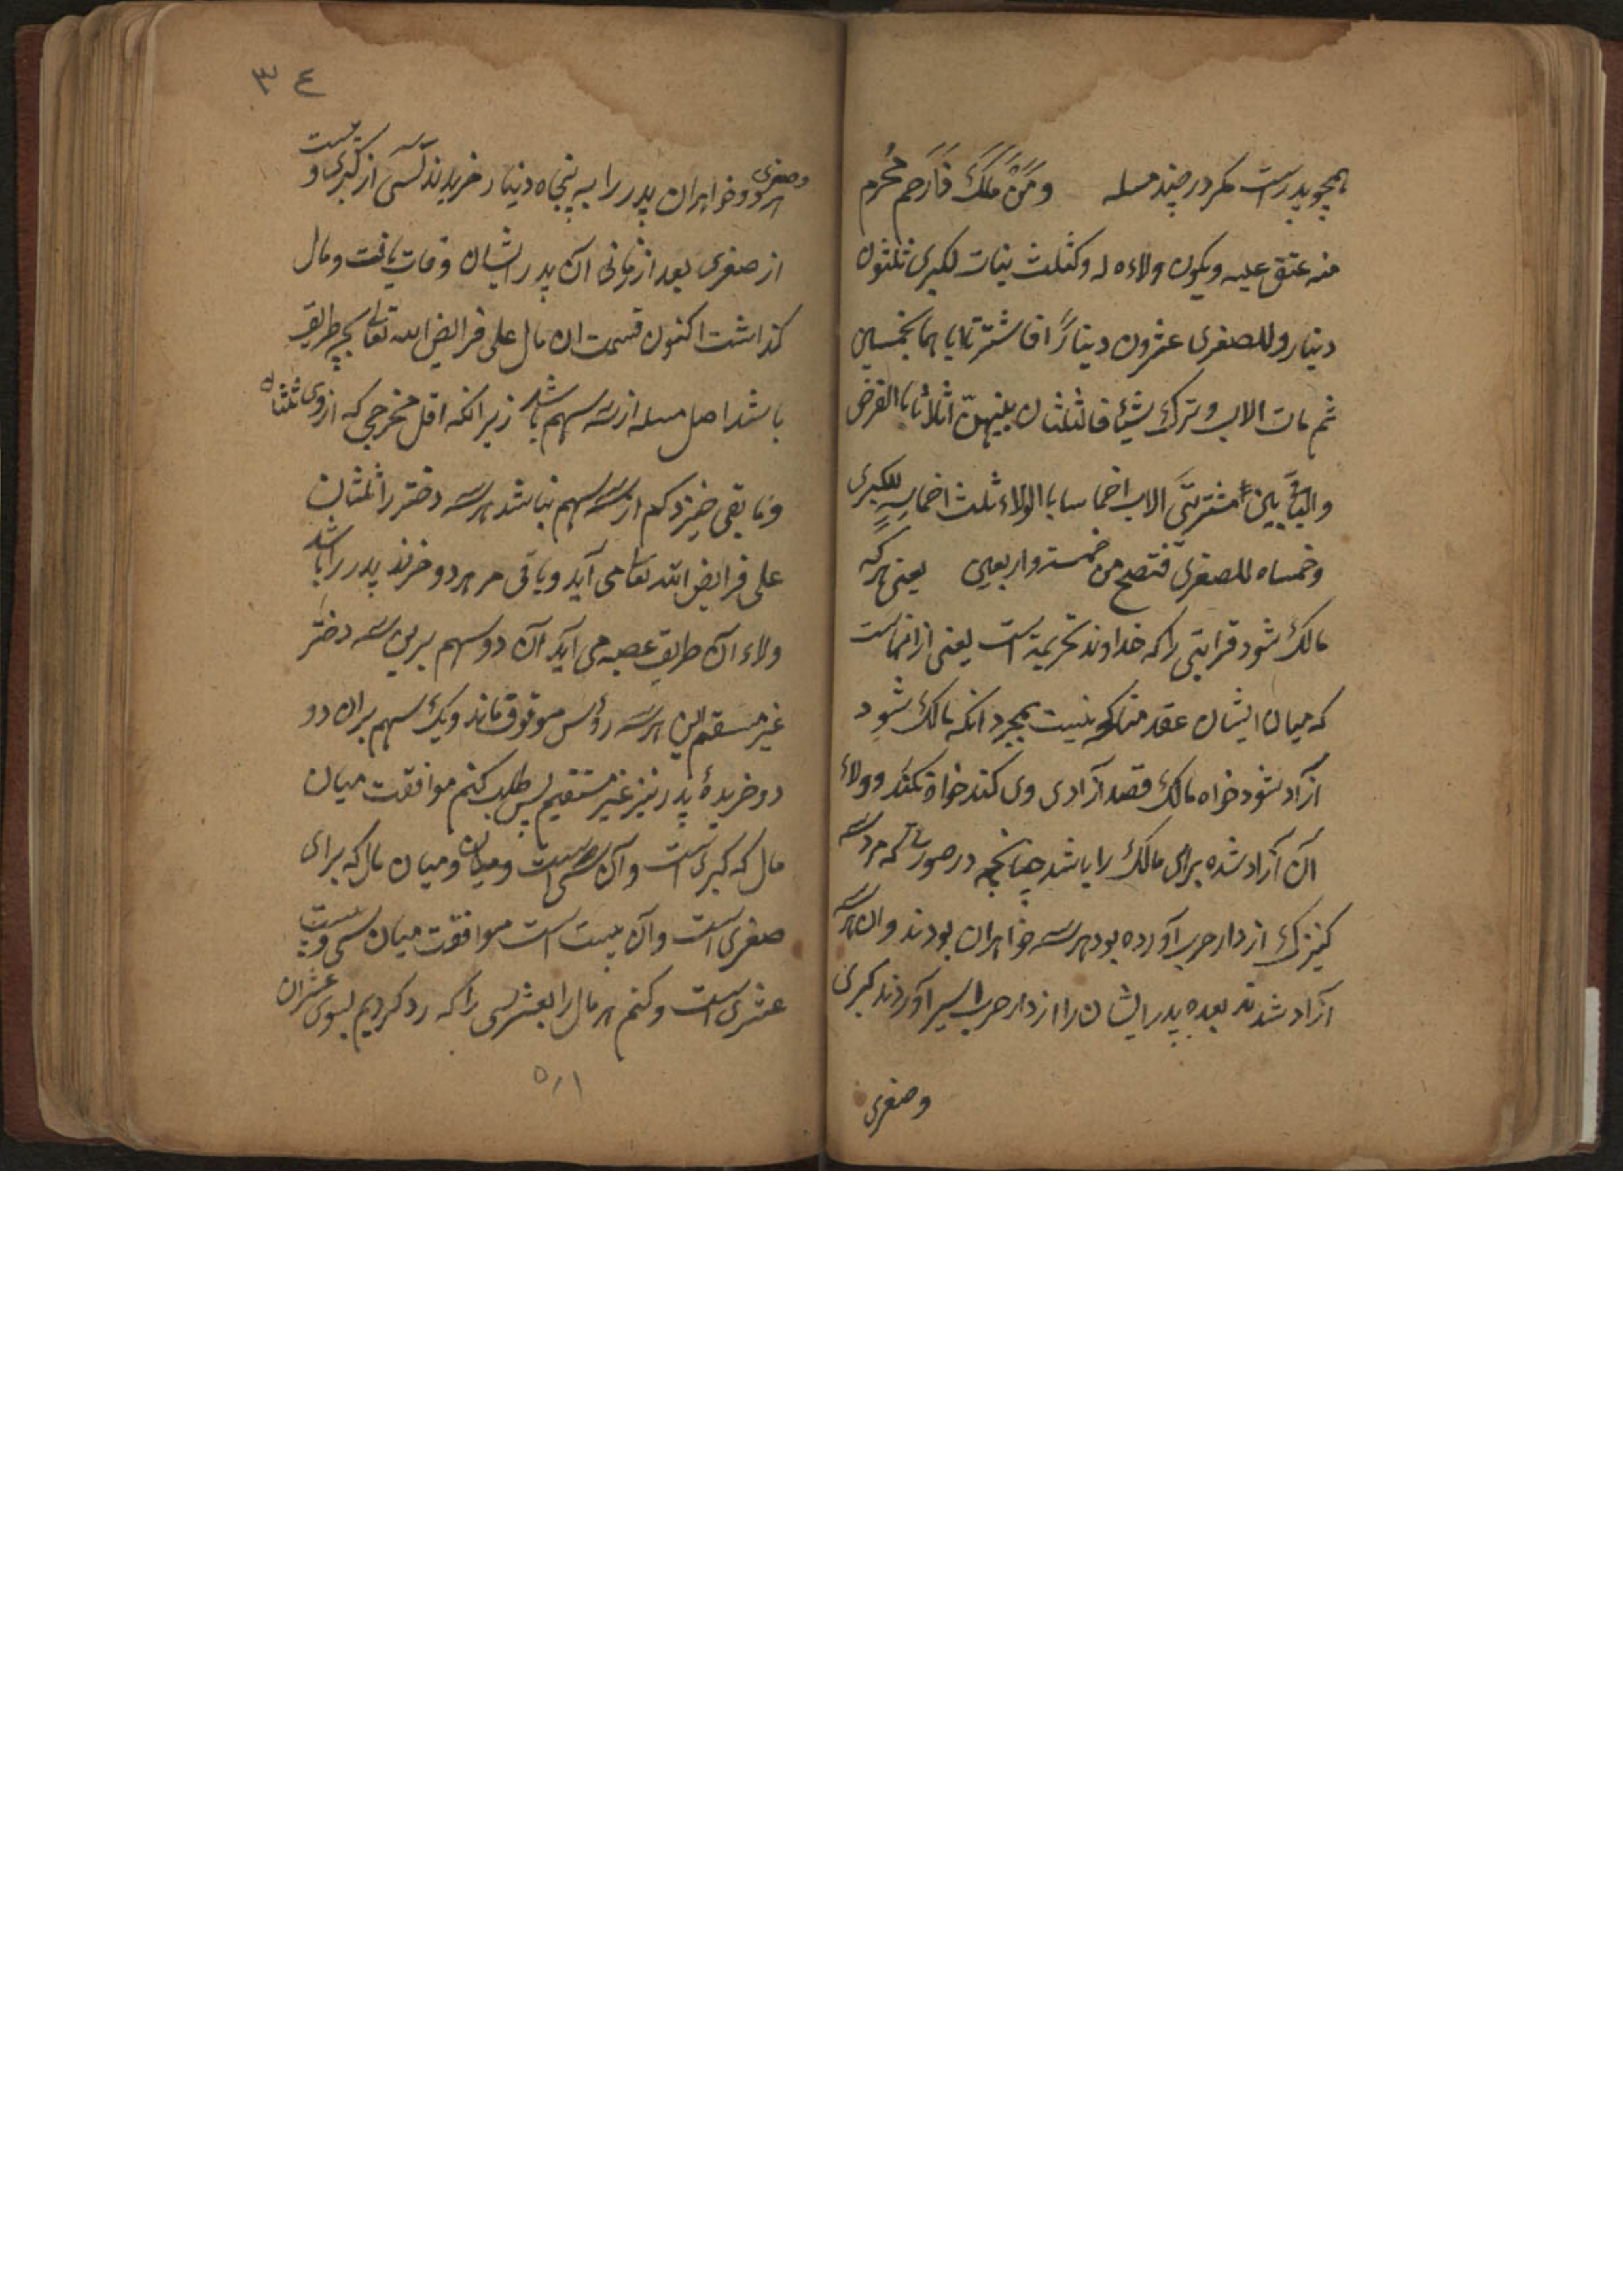 همچو پدرست مکر در چند مسله ومن ملک ذا رحم محرم
منه عتق علیه ویکون ولاءه له وکثلث بنات لکبری ثلثون
دینار وللصغری عشرون دینارًا فاشترتا اباهما بخمسین
ثم مات الاب وترک شیئًا فالثلثان بینهنّ اثلاثا باالفرض
والباقی بین مشتریتَی الاب اخماسا باالولاء ثلث اخماسه للکبری
وخمساه للصغری فتصح من خمسة واربعین یعنی هرکه
مالک شود قرابتی را که خداوند تحریمیه است یعنی ازانهاست
که میان ایشان عقد مناکحه نیست بمجرد انکه مالک شود
ازاد شود خواه مالک قصد آزادی وی کند خواه نکند وولاء
آن آزاد شده برای مالک را باشد چنانچه در صورتی که مرد سه
کنیزک از دار حرب آورده بود هر سه خواهران بودند وان هر سه
آزاد شدند بعده پدر ایشان را از دار حرب اسیر آوردند کبری
وصغری
۳٤
وصغری هر دو خواهران پدر را به پنجاه دینار خریدند سی از کبری وبیست
از صغری بعد از زمانی آن پدر ایشان وفات یافت ومال
کذاشت اکنون قسمت ان مال علی فرایض الله تعالی بچه طریق
باشد اصل مسله از سه سهم باشد زیرانکه اقل مخرجی که ازوی ثلثان
وما بقی خیزد کم از سه سهم نباشد هر سه دختر را ثلثان
علی فرایض الله تعالی می آید وباقی مر هر دو خرند پدر را باشد
ولاء آن طریق عصبه می آید آن دو سهم برین سه دختر
غیر مستقیم این هر سه رؤس موقوف ماند ویک سهم بران دو
دو خریدهٔ پدر نیز غیر مستقیم پس طلب کنم موافقت میان
مال که کبری است وآن سی است ومیان مال که برای
صغری است وآن بیست است موافقت میان سی وبیست
عشری است وکنم هر مال را بعشر سی را که رد کردیم بسوی عشران
۵۱۱